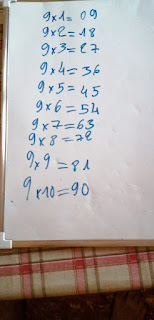 9x1=09
9x2=18
9x3=27
9x4=36
9x5=45
9x6=54
9x7=63
9x8=72
9x9=81
9x10=90